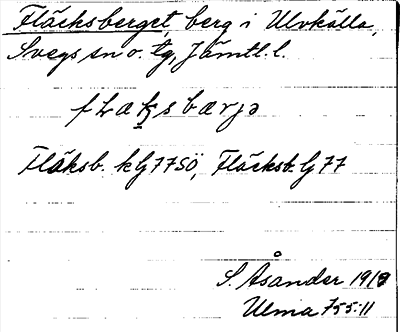 Fläcksberget, berg i Ulvkälla,
Svegs sn o. tg, Jämtl. l.
flæksbærjə
Fläksb. kbj 77 SÖ, Fläcksb. bj 77
S. Åsander 1918
Ulma 755:11